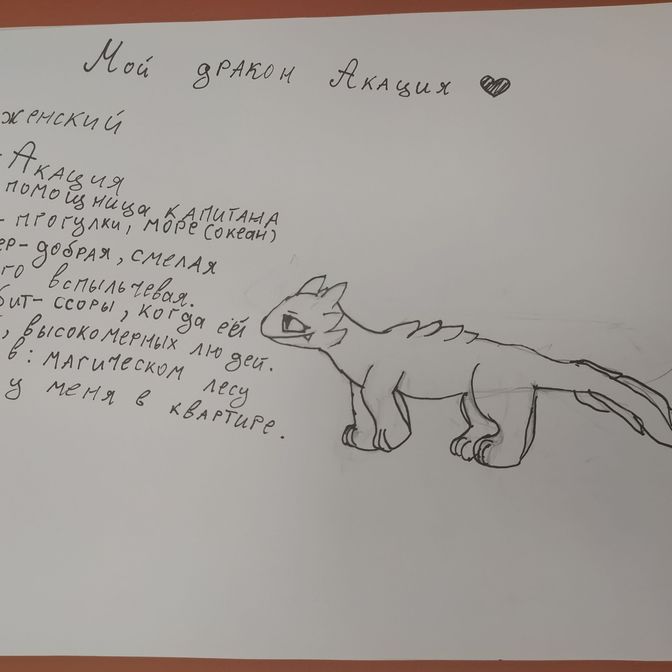 Мой дракон Акация
женский
- Акация
помощница капитана
- прогулки, море (океан)
ер - добрая, смелая
го вспыльчевая.
бит - ссоры, когда её
, высокомерных людей.
в: магическом лесу
у меня в квартире.